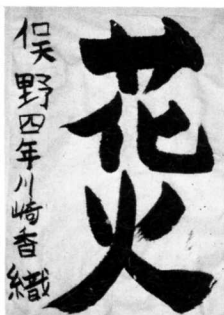 花火
俣野四年川崎香織